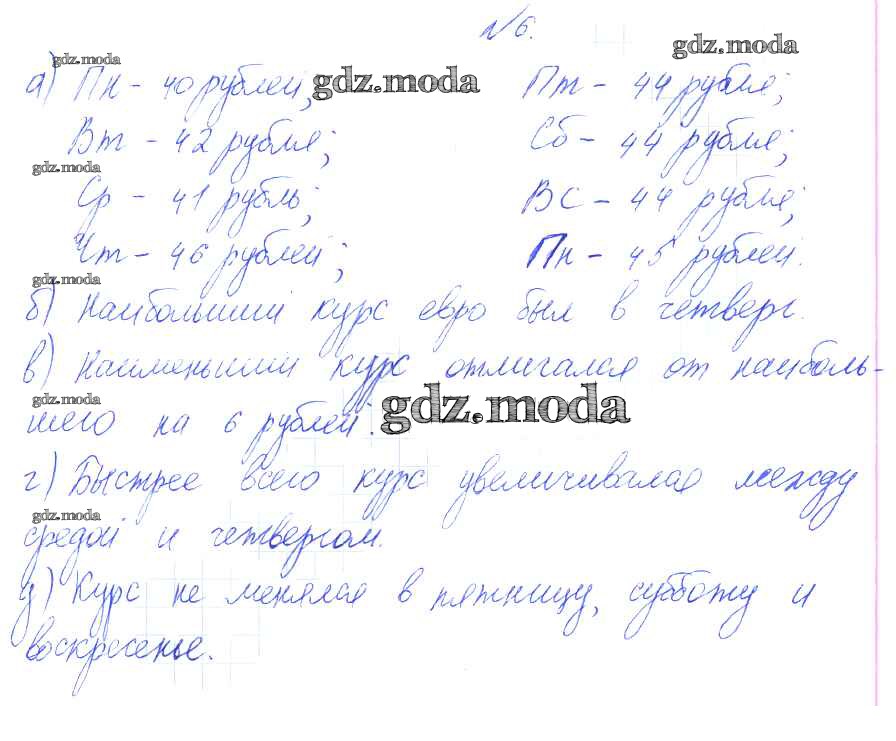 № 6.
а) Пн - 40 рублей; Пт - 44 рубля;
Вт - 42 рубля; Сб - 44 рубля;
Ср - 41 рубль; ВС - 44 рубля;
Чт - 46 рублей; Пн - 45 рублей.
б) Наибольший курс евро был в четверг.
в) Наименьший курс отличался от наиболь-
шего на 6 рублей.
г) Быстрее всего курс увеличивался между
средой и четвергом.
д) Курс не менялся в пятницу, субботу и
воскресенье.
gdz.moda
gdz.moda
gdz.moda
gdz.moda
gdz.moda
gdz.moda
gdz.moda
gdz.moda